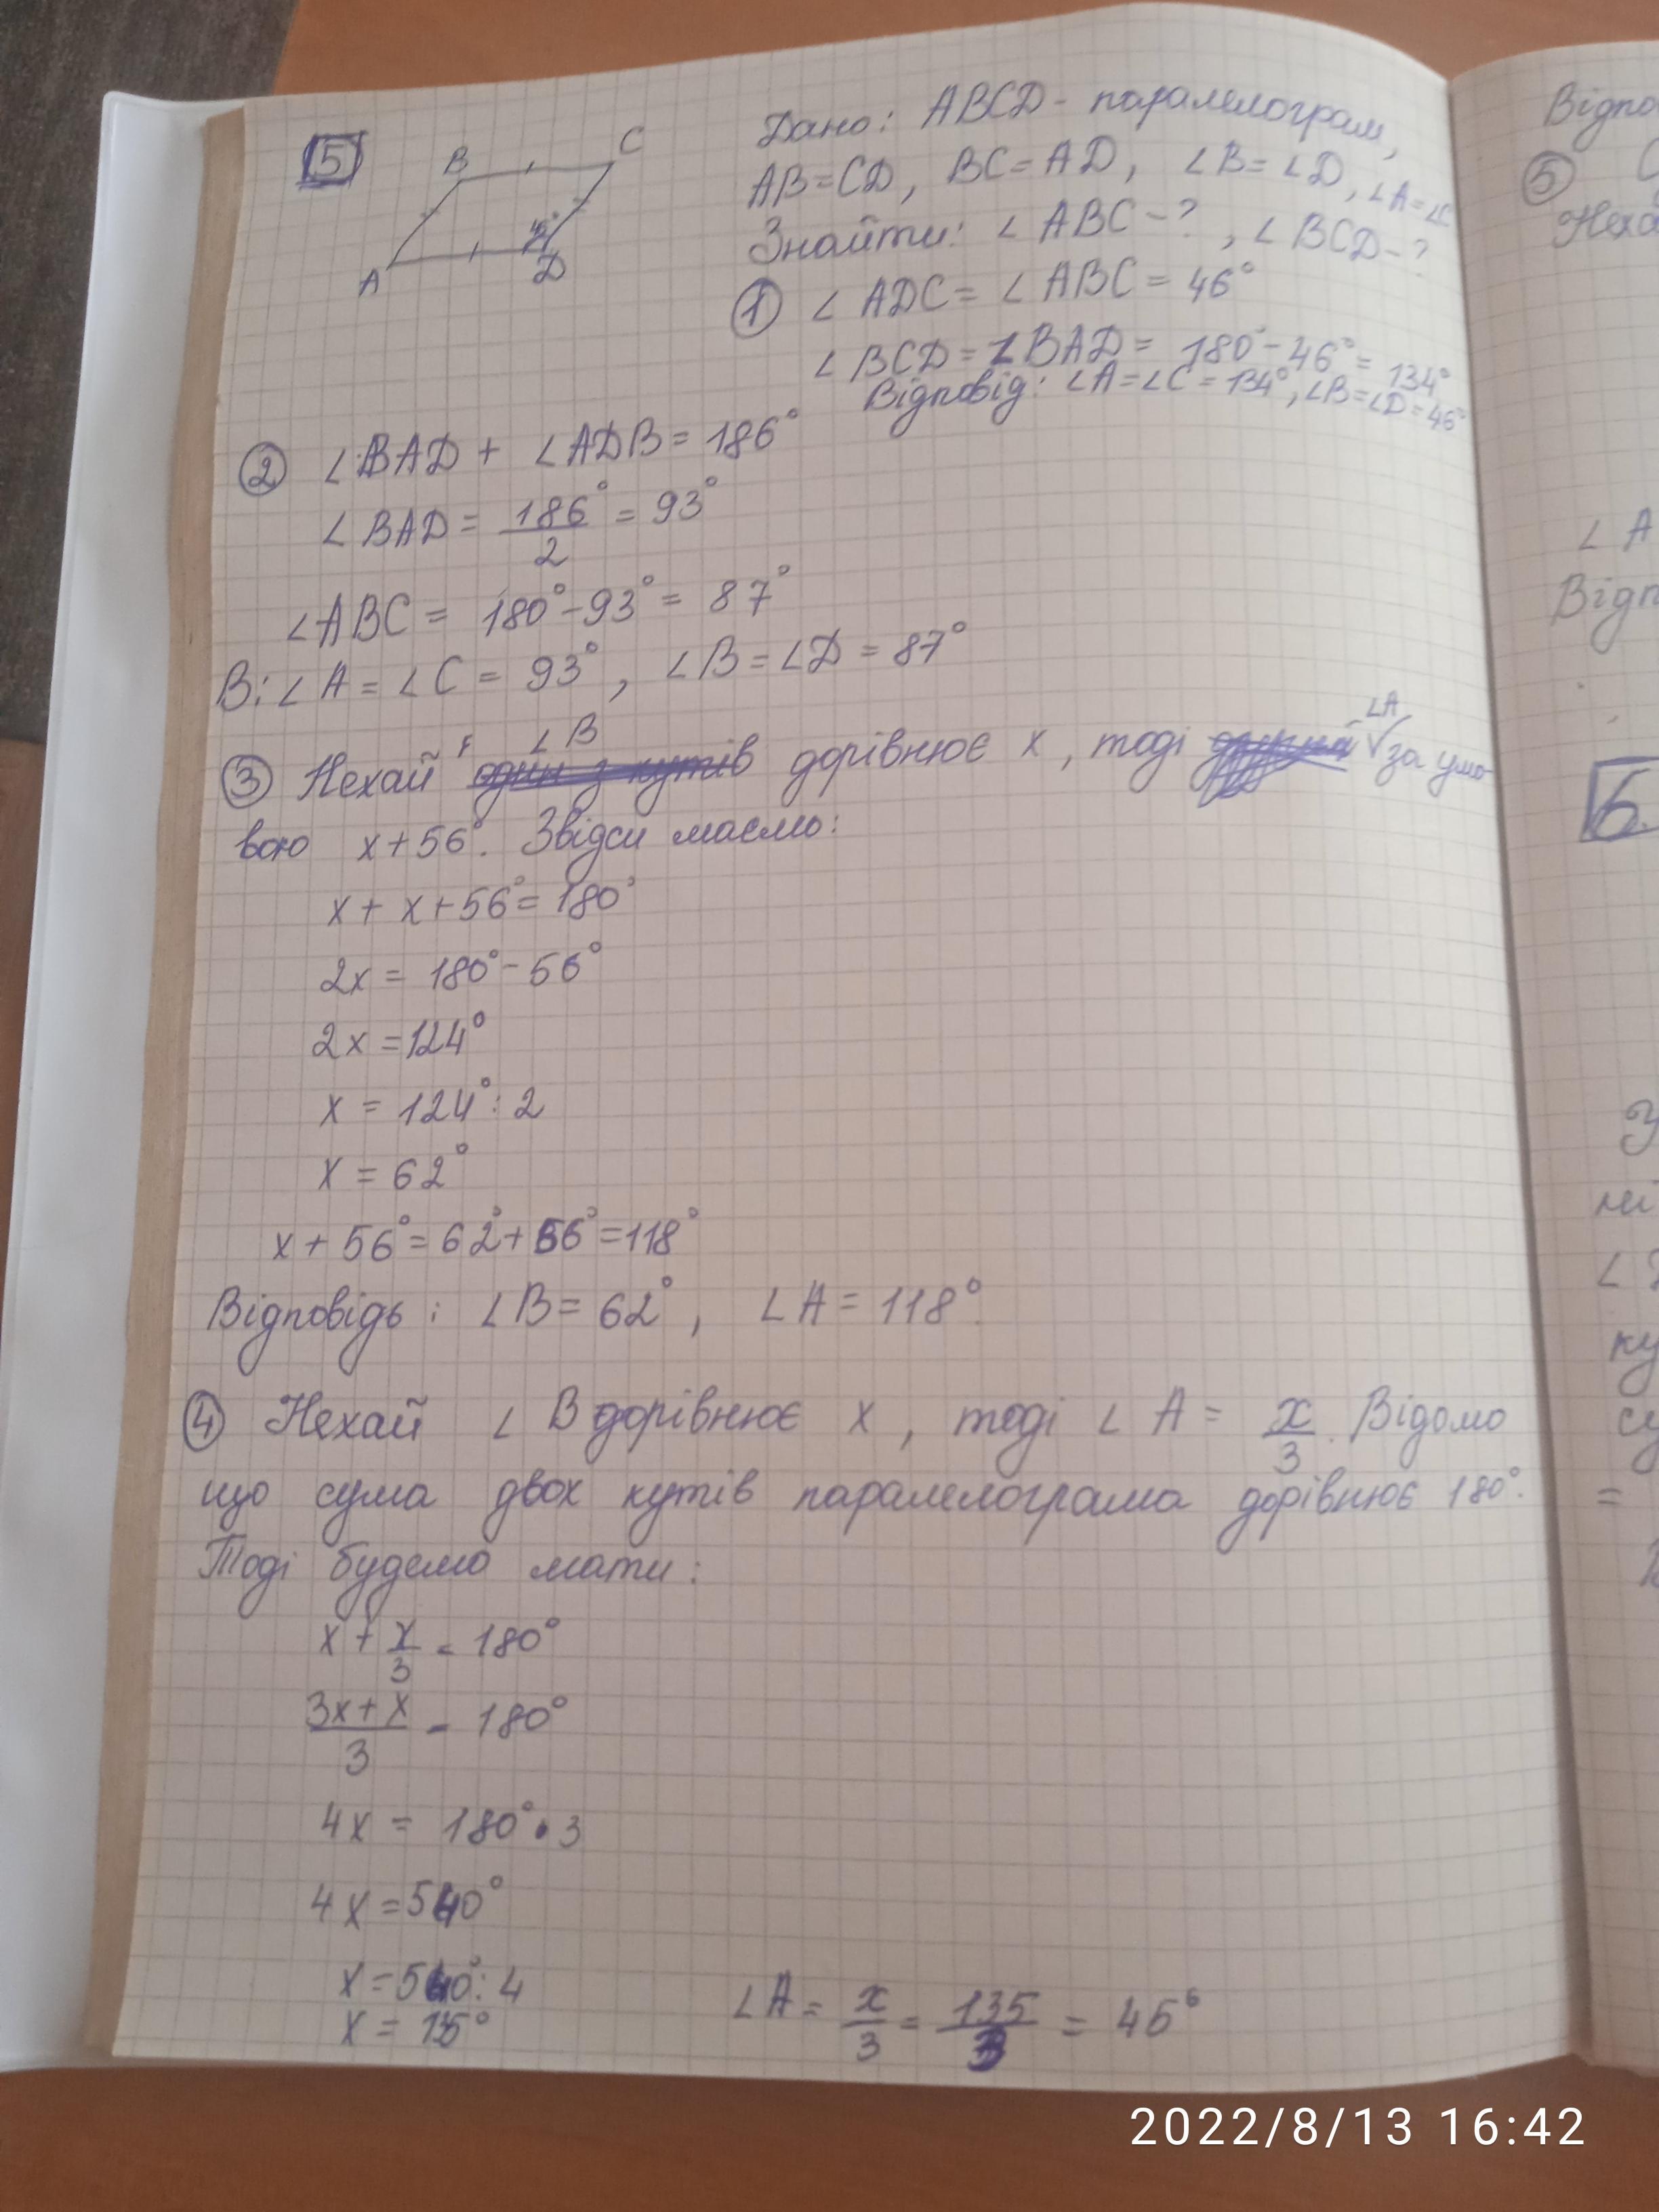 5
B
C
A
D
Дано: ABCD - паралелограм,
AB=CD, BC=AD, ∠B=∠D, ∠A=∠C
Знайти: ∠ABC-?, ∠BCD-?
① ∠ADC=∠ABC=46°
∠BCD=∠BAD=180°-46°=134°
Відповід: ∠A=∠C=134°, ∠B=∠D=46°
② ∠BAD+ ∠ADB=186°
∠BAD= 186°/2 =93°
∠ABC= 180°-93°= 87°
В: ∠A=∠C= 93°, ∠B=∠D=87°
③ Нехай ∠B дорівнює x, тоді ∠A за умо
вою x+56°. Звідси маємо:
x+x+56°=180°
2x= 180°-56°
2x=124°
x= 124°:2
x=62°
x+56°=62°+56°=118°
Відповідь: ∠B=62°, ∠A=118°.
④ Нехай ∠B дорівнює x, тоді ∠A= x/3. Відомо
що сума двох кутів паралелограма дорівнює 180°.
Тоді будемо мати:
x+x/3=180°
3x+x/3=180°
4x= 180°•3
4x=540°
x=540°:4
x=135°
∠A= x/3 = 135/3 = 45°
Відпо
⑤
Неха
∠A
Відп
6.
ні
ку
=
2022/8/13 16:42